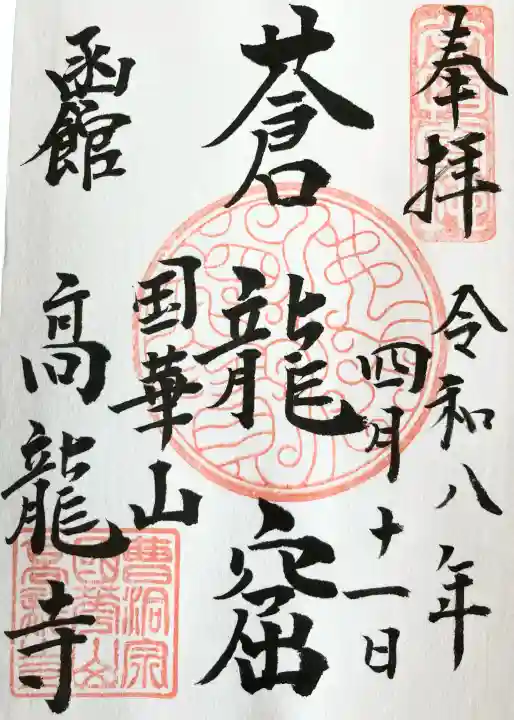 奉拝
令和八年
四月十一日
蒼龍窟
国華山
函館
高龍寺
曹洞宗
国華山
高龍寺